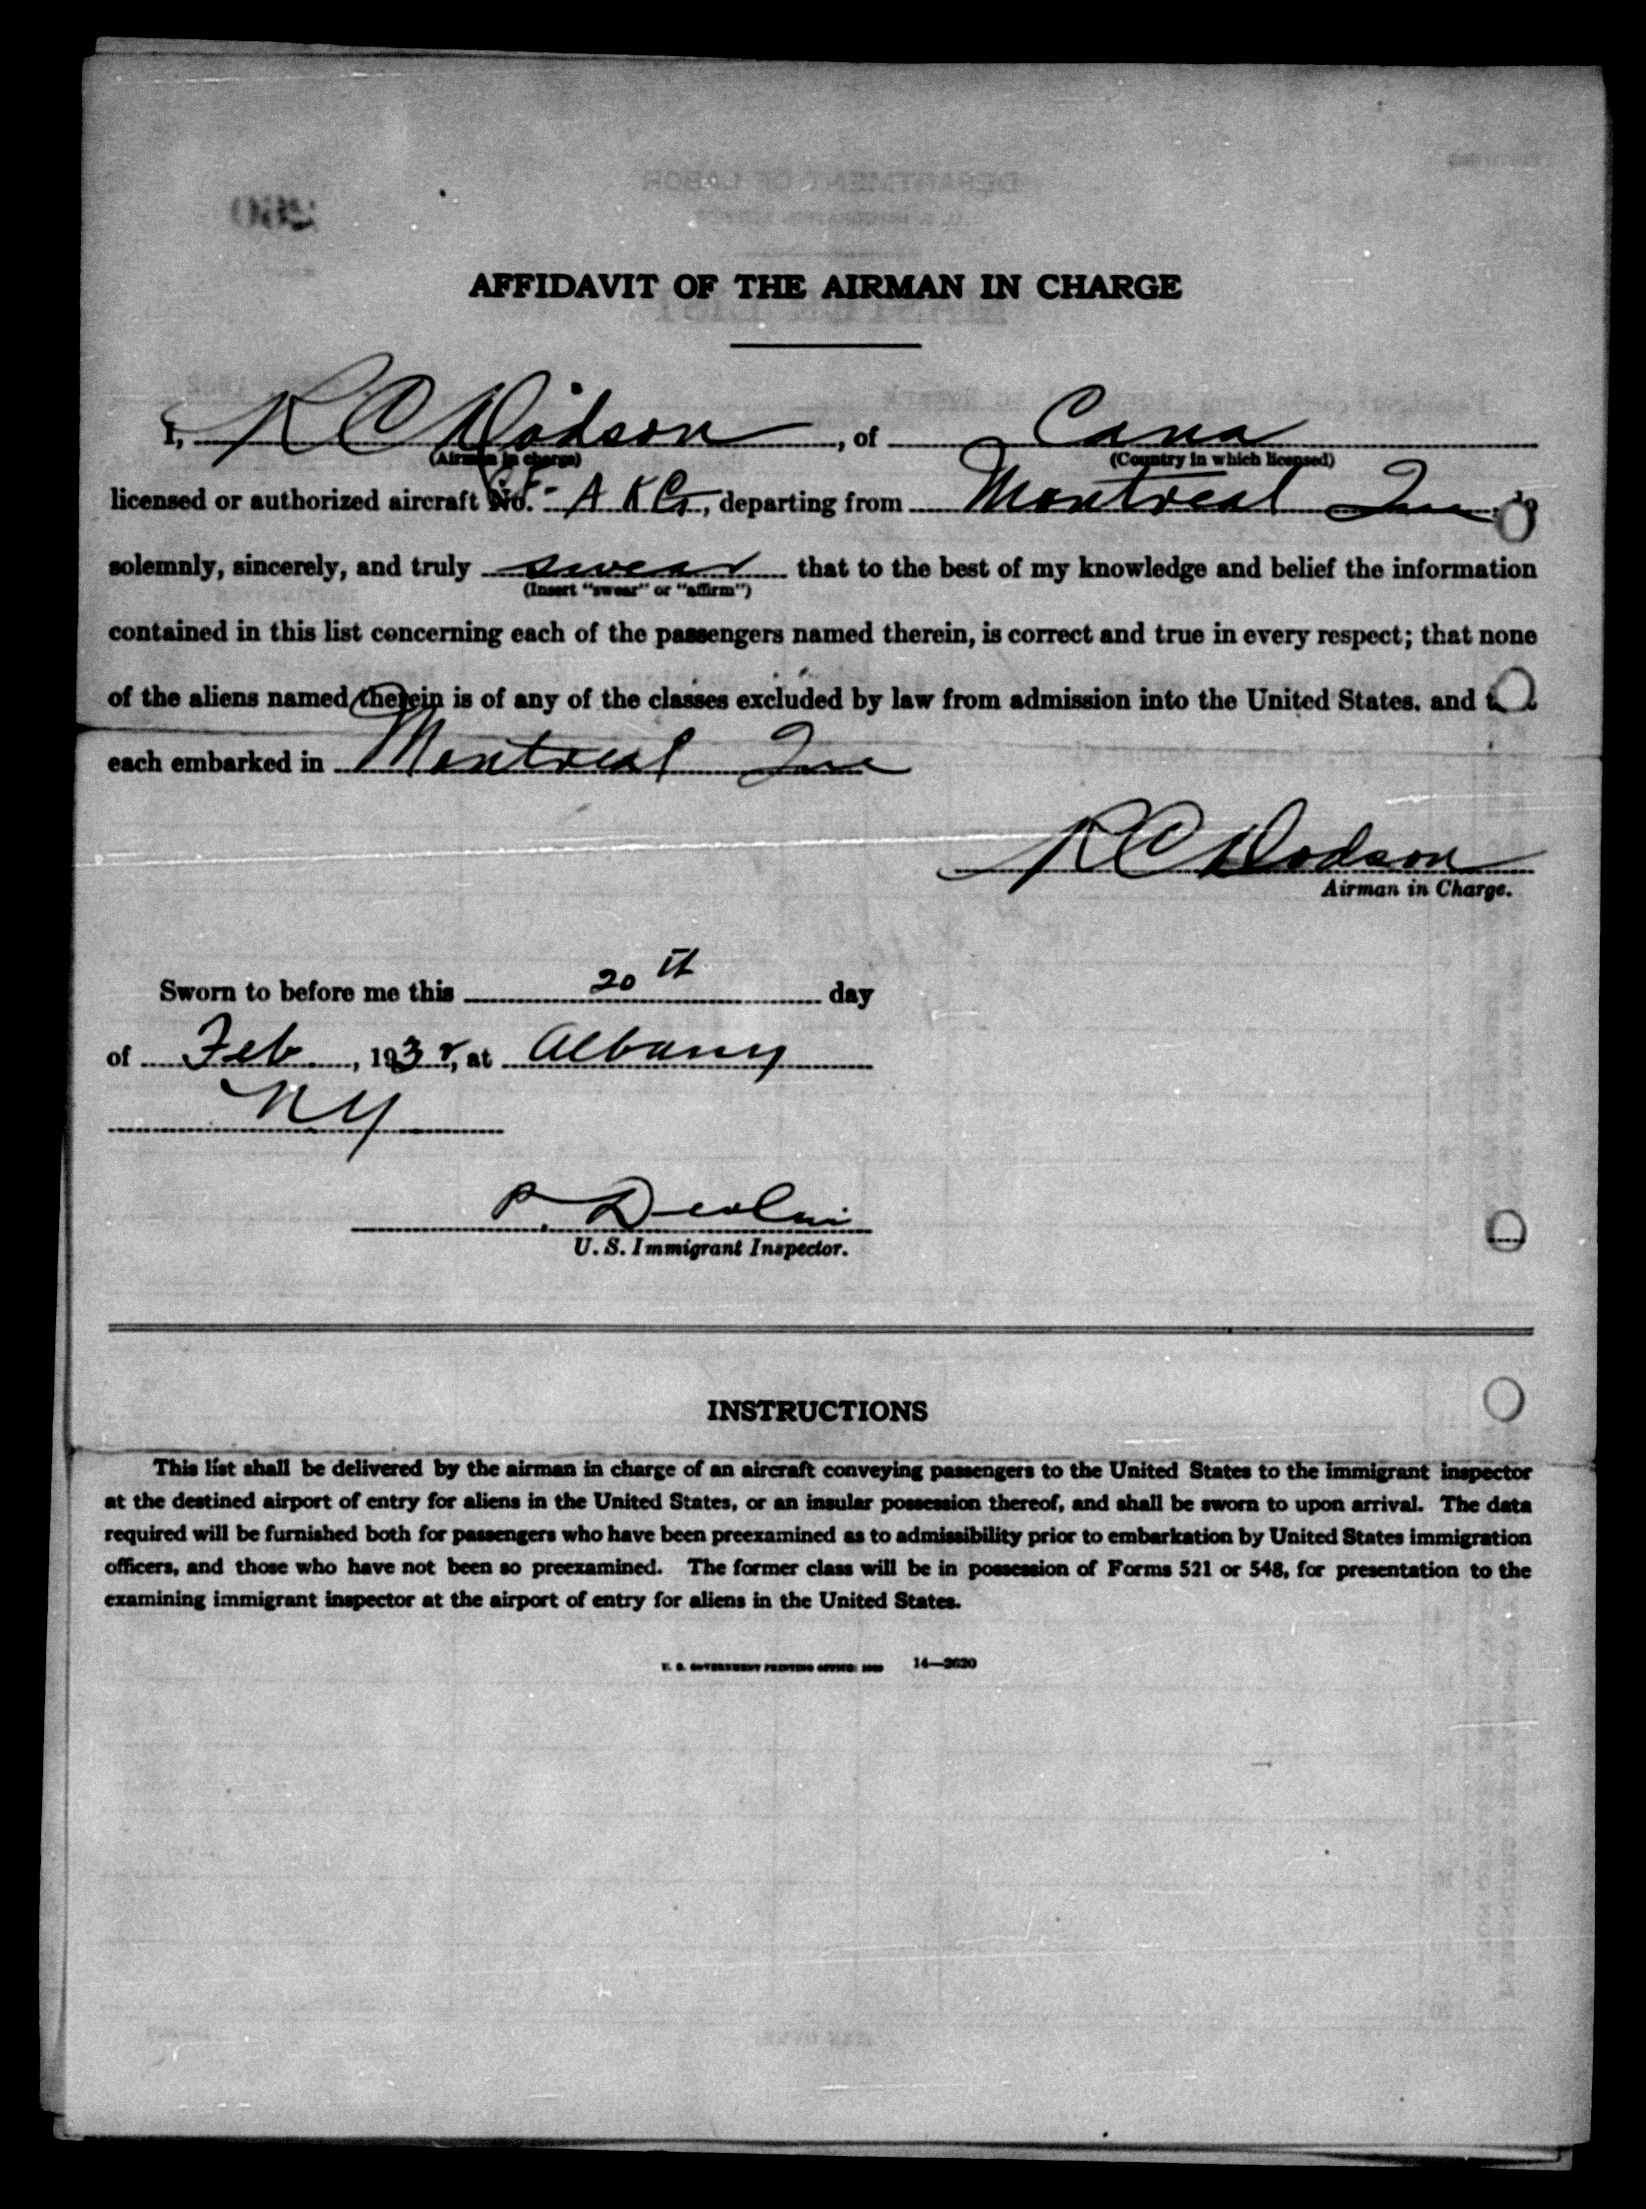 AFFIDAVIT OF THE AIRMAN IN CHARGE
I, R C Dodson, of Cana
(Airman in charge) (Country in which licensed)
licensed or authorized aircraft No. CF- A K G, departing from Montreal Que, do
solemnly, sincerely, and truly swear that to the best of my knowledge and belief the information
(Insert "swear" or "affirm")
contained in this list concerning each of the passengers named therein, is correct and true in every respect; that none
of the aliens named therein is of any of the classes excluded by law from admission into the United States, and
each embarked in Montreal Que
R C Dodson
Airman in Charge.
Sworn to before me this 20th day
of Feb, 1932, at Albany
NY
P. Devlin
U. S. Immigrant Inspector.
INSTRUCTIONS
This list shall be delivered by the airman in charge of an aircraft conveying passengers to the United States to the immigrant inspector
at the destined airport of entry for aliens in the United States, or an insular possession thereof, and shall be sworn to upon arrival. The data
required will be furnished both for passengers who have been preexamined as to admissibility prior to embarkation by United States immigration
officers, and those who have not been so preexamined. The former class will be in possession of Forms 521 or 548, for presentation to the
examining immigrant inspector at the airport of entry for aliens in the United States.
U. S. GOVERNMENT PRINTING OFFICE: 14—2620